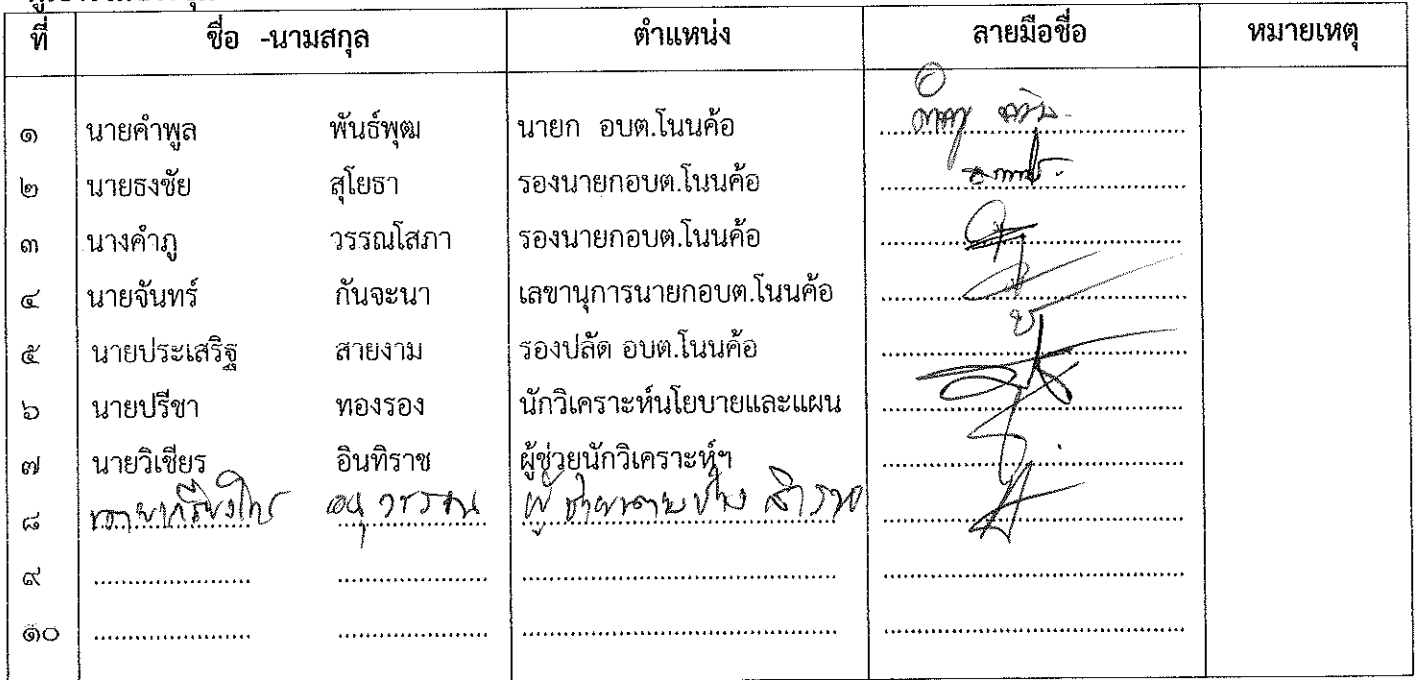 ที่ ชื่อ -นามสกุล ตำแหน่ง ลายมือชื่อ หมายเหตุ
๑ นายคำพูล พันธ์พุฒ นายก อบต.โนนค้อ
๒ นายธงชัย สุโยธา รองนายกอบต.โนนค้อ
๓ นางคำภู วรรณโสภา รองนายกอบต.โนนค้อ
๔ นายจันทร์ กันจะนา เลขานุการนายกอบต.โนนค้อ
๕ นายประเสริฐ สายงาม รองปลัด อบต.โนนค้อ
๖ นายปรีชา ทองรอง นักวิเคราะห์นโยบายและแผน
๗ นายวิเชียร อินทิราช ผู้ช่วยนักวิเคราะห์ฯ
๘ นายเกรียงไกร อนุวรรณ ผู้ช่วยนายช่างสำรวจ
๙
๑๐